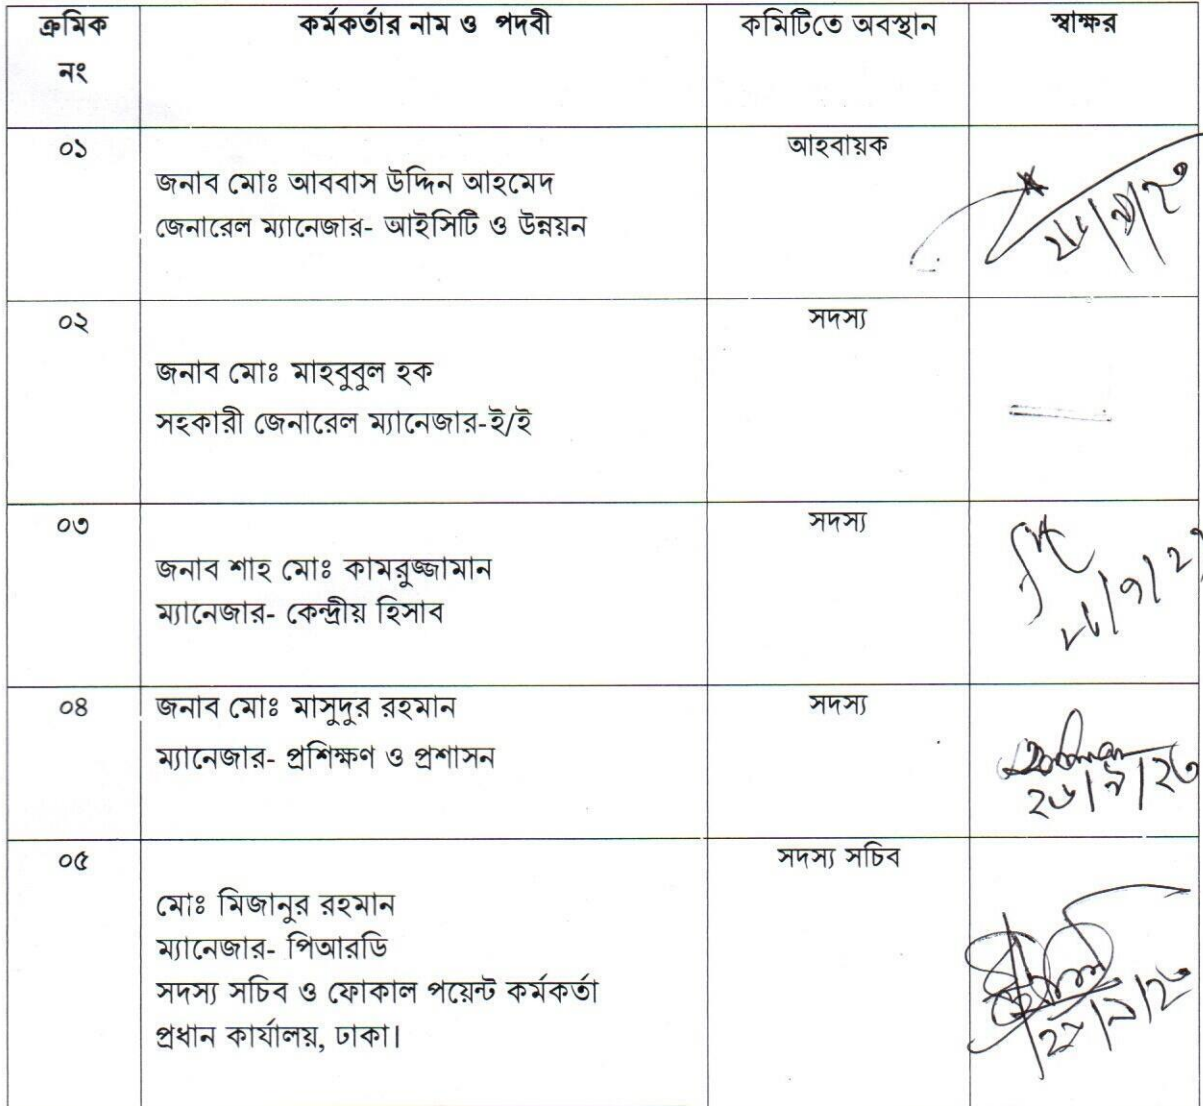 ক্রমিক নং কর্মকর্তার নাম ও পদবী কমিটিতে অবস্থান স্বাক্ষর
০১ আহবায়ক
জনাব মোঃ আববাস উদ্দিন আহমেদ
জেনারেল ম্যানেজার- আইসিটি ও উন্নয়ন
০২ সদস্য
জনাব মোঃ মাহবুবুল হক
সহকারী জেনারেল ম্যানেজার-ই/ই
০৩ সদস্য
জনাব শাহ মোঃ কামরুজ্জামান
ম্যানেজার- কেন্দ্রীয় হিসাব
০৪ জনাব মোঃ মাসুদুর রহমান সদস্য
ম্যানেজার- প্রশিক্ষণ ও প্রশাসন
০৫ সদস্য সচিব
মোঃ মিজানুর রহমান
ম্যানেজার- পিআরডি
সদস্য সচিব ও ফোকাল পয়েন্ট কর্মকর্তা
প্রধান কার্যালয়, ঢাকা।